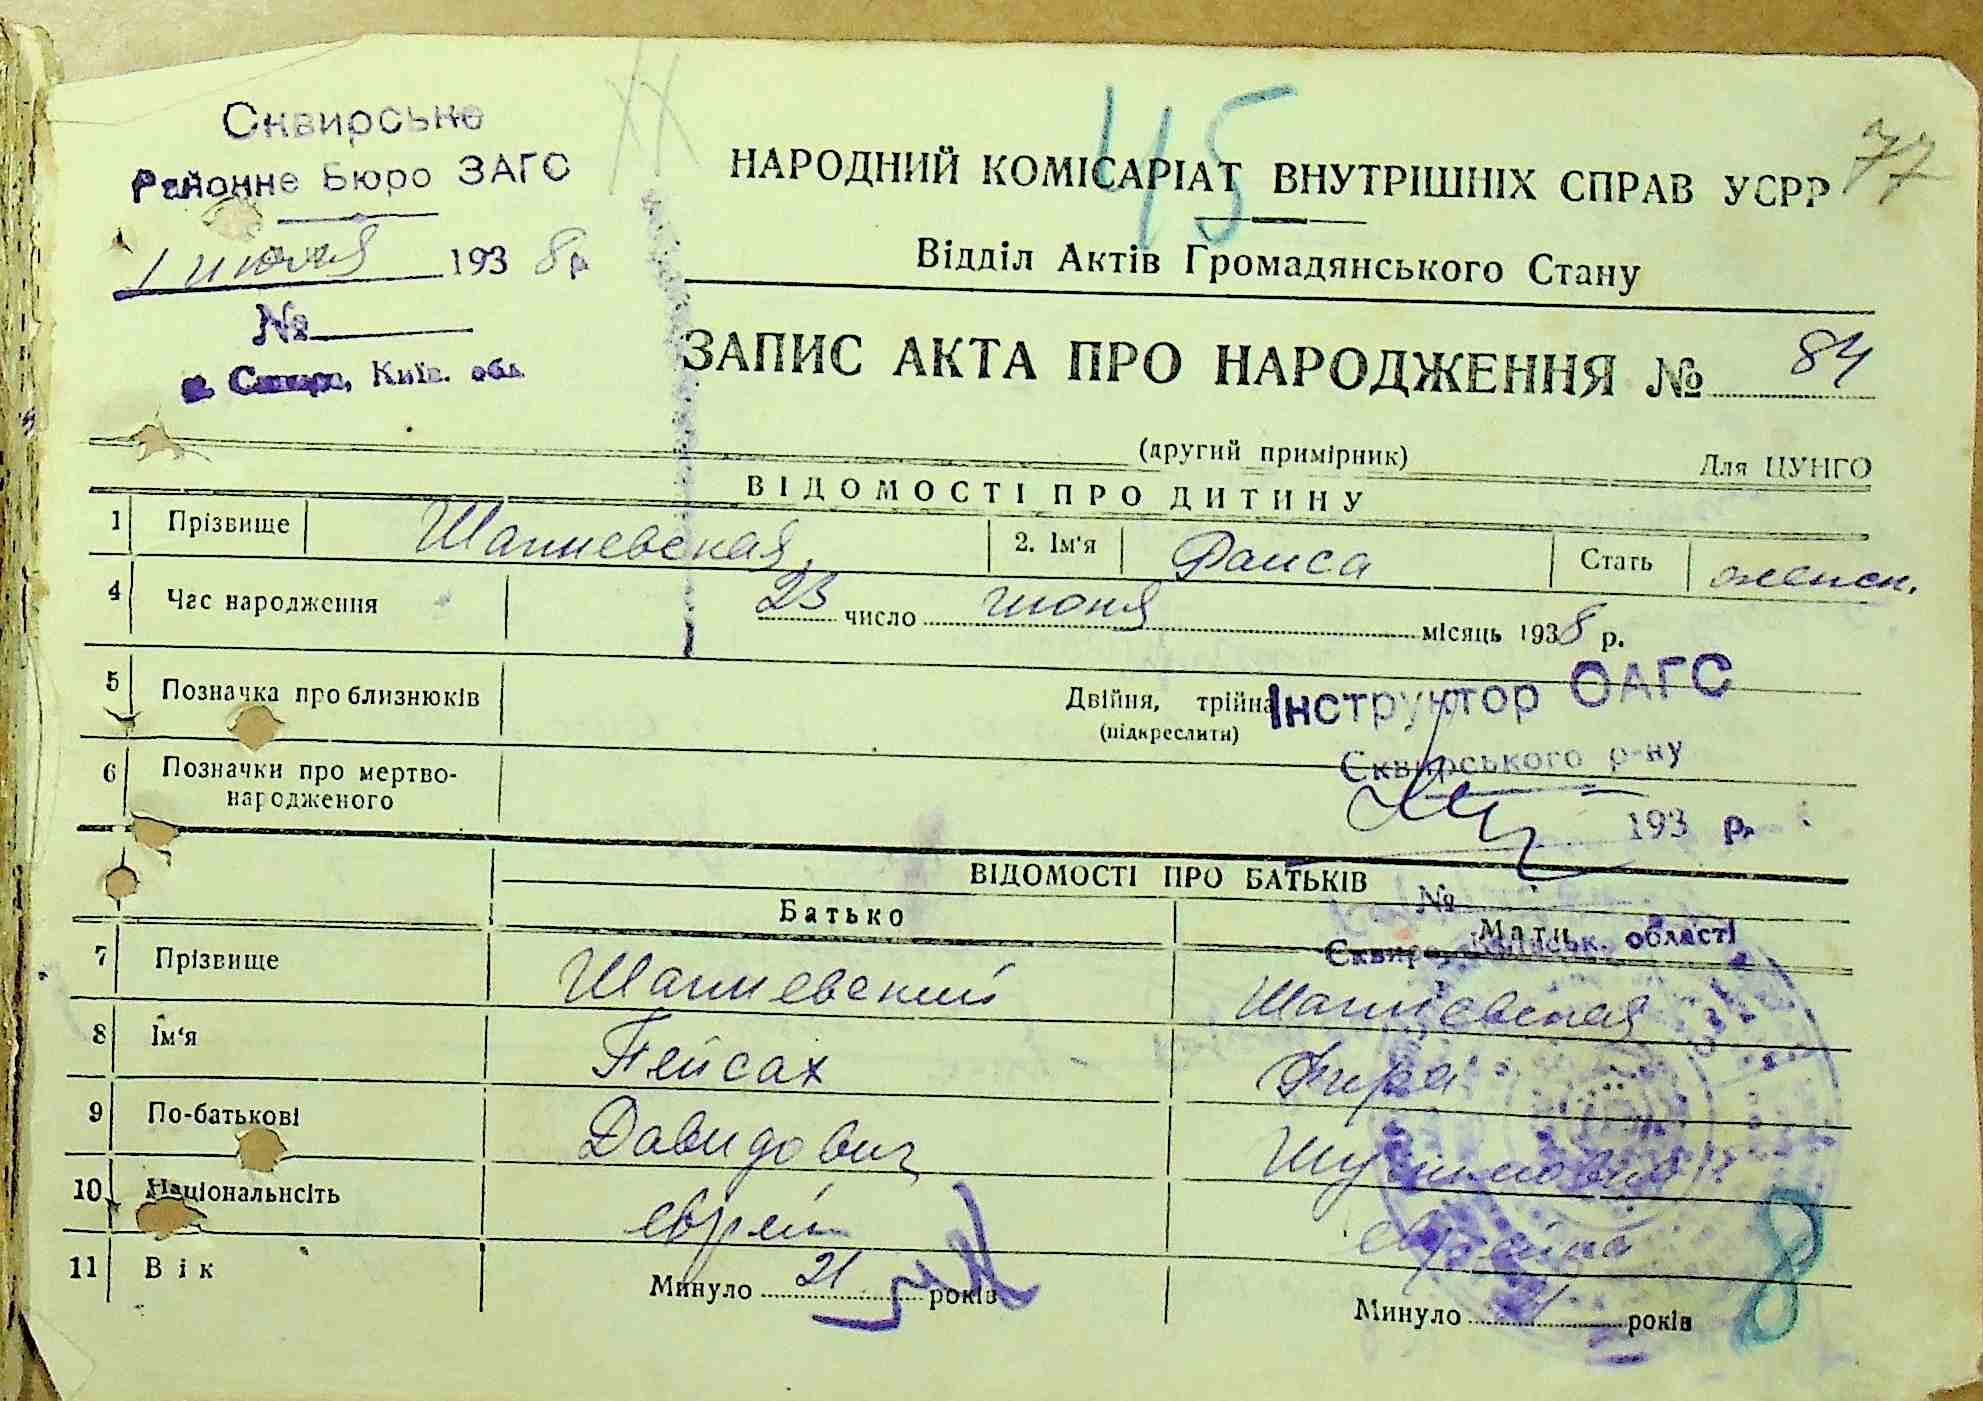 Сквирське
Районне Бюро ЗАГС
1 июля 1938 р
№
м. Сквира, Київ. обл.
45
77
НАРОДНИЙ КОМІСАРІАТ ВНУТРІШНІХ СПРАВ УСРР
Відділ Актів Громадянського Стану
ЗАПИС АКТА ПРО НАРОДЖЕННЯ № 84
(другий примірник) Для ЦУНГО
ВІДОМОСТІ ПРО ДИТИНУ
1 Прізвище Шапиевская 2. Ім'я Раиса Стать женск.
4 Час народження 23 число июня місяць 1938 р.
5 Позначка про близнюків Двійня, трійня
(підкреслити)
Інструктор ОАГС
Сквирського р-ну
6 Позначки про мертво-
народженого
193 р.
ВІДОМОСТІ ПРО БАТЬКІВ
№
Батько Мати
області
7 Прізвище Шапиевский Шапиевская
8 Ім'я Пейсах
9 По-батькові Давидович
10 Національність еврей еврейка
11 Вік Минуло 21 років Минуло років
8